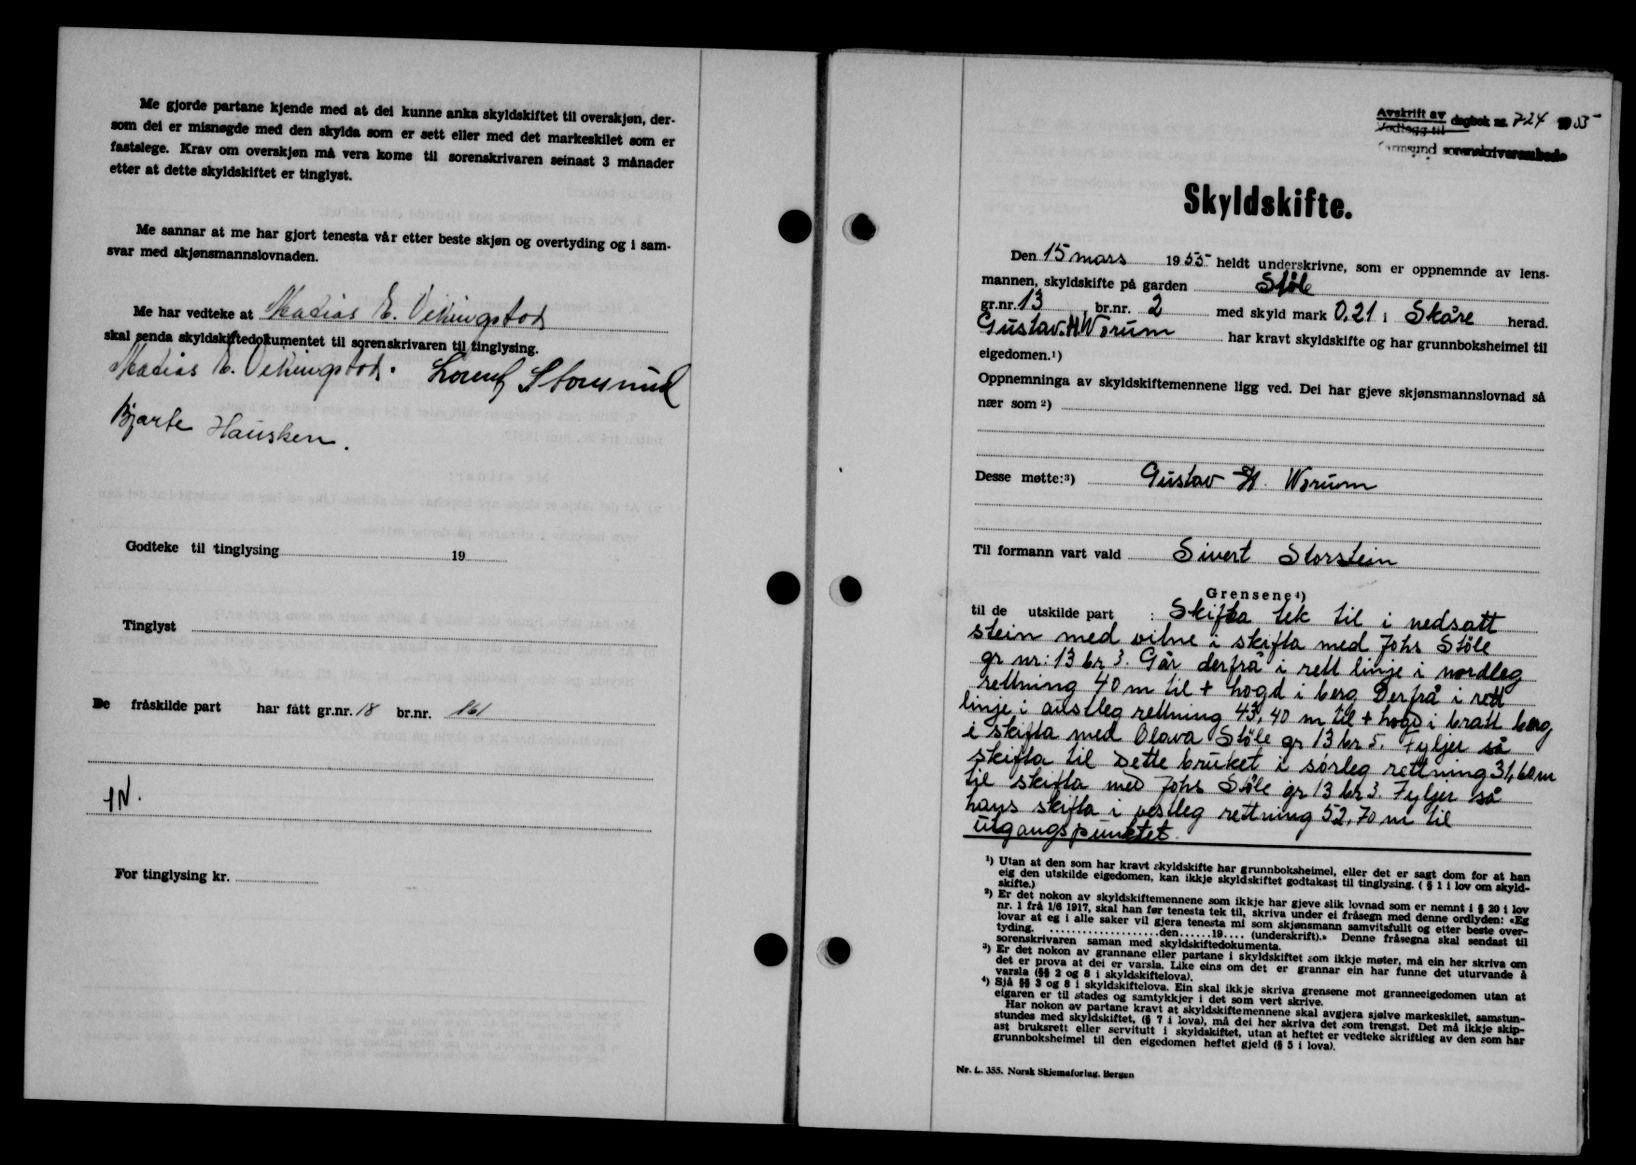 Me gjorde partane kjende med at dei kunne anka skyldskiftet til overskjøn, der-
som dei er misnøgde med den skylda som er sett eller med det markeskilet som er
fastslege. Krav om overskjøn må vera kome til sorenskrivaren seinast 3 månader
etter at dette skyldskiftet er tinglyst.
Me sannar at me har gjort tenesta vår etter beste skjøn og overtyding og i sam-
svar med skjønsmannslovnaden.
Me har vedteke at Matias E. Vikingstad
skal senda skyldskiftedokumentet til sorenskrivaren til tinglysing.
Matias E. Vikingstad. Lorentz Storesund
Bjarte Hausken.
Godteke til tinglysing 19
Tinglyst
De fråskilde part har fått gr.nr. 18 br.nr. 161
For tinglysing kr.
Avskrift av
Vedlegg til dagbok nr. 724 1955
Karmsund sorenskriverembede
Skyldskifte.
Den 15 mars 1955 heldt underskrivne, som er oppnemnde av lens-
mannen, skyldskifte på garden Støle
gr.nr. 13 br.nr. 2 med skyld mark 0,21 i Skåre herad.
Gustav H Worum har kravt skyldskifte og har grunnboksheimel til
eigedomen.¹)
Oppnemninga av skyldskiftemennene ligg ved. Dei har gjeve skjønsmannslovnad så
nær som ²)
Desse møtte:³) Gustav H. Worum
Til formann vart vald Sivert Storstein
Grensene⁴)
til de utskilde part : Skifta tek til i nedsatt
stein med vitne i skifta med Johs Støle
gr nr: 13 br 3. Går derfrå i rett linje i nordleg
rettning 40 m til + hogd i berg Derfrå i rett
linje i austleg rettning 43,40 m til + hogd i bratt berg
i skifta med Olava Støle gr 13 br 5. Fyljer så
skifta til Dette bruket i sørleg rettning 31,60 m
til skifta med Johs Støle gr 13 br 3. Fyljer så
hans skifta i vestleg rettning 52,70 m til
utgangspunktet.
¹) Utan at den som har kravt skyldskifte har grunnboksheimel, eller det er sagt dom for at han
eig den utskilde eigedomen, kan ikkje skyldskiftet godtakast til tinglysing. ( § 1 i lov om skyld-
skifte.)
²) Er det nokon av skyldskiftemennene som ikkje har gjeve slik lovnad som er nemnt i § 20 i lov
nr. 1 frå 1/6 1917, skal han før tenesta tek til, skriva under ei fråsegn med denne ordlyden: «Eg
lovar at eg i alle saker vil gjera tenesta mi som skjønsmann samvitsfullt og etter beste over-
tyding. ....................den......19.... (underskrift).» Denne fråsegna skal sendast til
sorenskrivaren saman med skyldskiftedokumenta.
³) Er det nokon av grannane eller partane i skyldskiftet som ikkje møter, må ein her skriva om
det er prova at dei er varsla. Like eins om det er grannar ein har funne det uturvande å
varsla (§§ 2 og 8 i skyldskiftelova).
⁴) Sjå §§ 3 og 8 i skyldskiftelova. Ein skal ikkje skriva grensene mot granneeigedomen utan at
eigaren er til stades og samtykkjer i det som vert skrive.
Har nokon av partane kravt at skyldskiftemennene skal avgjera sjølve markeskilet, samstun-
stundes med skyldskiftet, (§ 7 i lova), må dei her skriva det som trengst. Det må ikkje skip-
ast bruksrett eller servitutt i skyldskiftet, utan at heftet er vedteke skriftleg av den som har
grunnboksheimel til den eigedomen heftet gjeld (§ 5 i lova).
Nr. L. 355. Norsk Skjemaforlag. Bergen